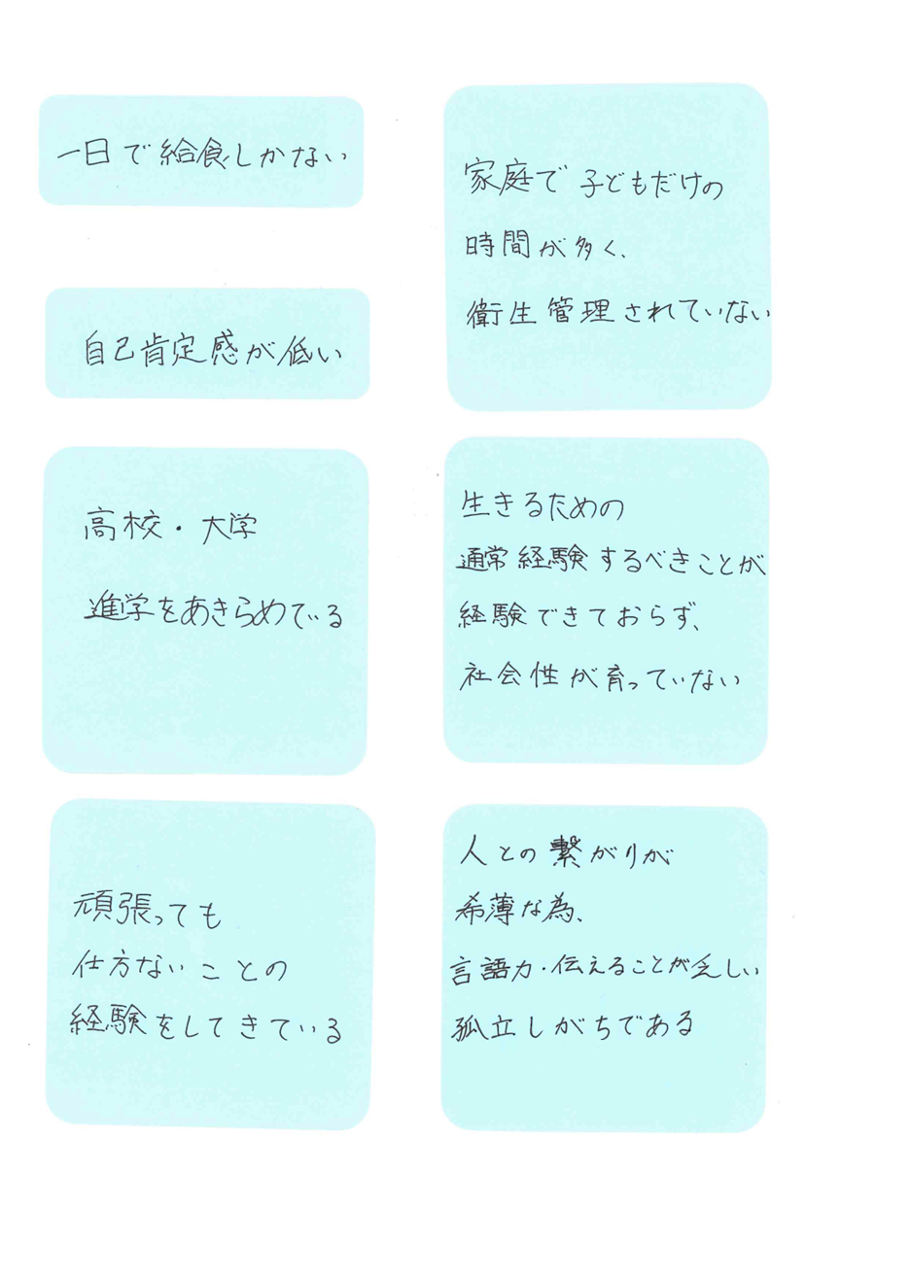 一日で給食しかない
自己肯定感が低い
高校・大学
進学をあきらめている
頑張っても
仕方ないことの
経験をしてきている
家庭で子どもだけの
時間が多く、
衛生管理されていない
生きるための
通常経験するべきことが
経験できておらず、
社会性が育っていない
人との繋がりが
希薄な為、
言語力・伝えることが乏しい
孤立しがちである